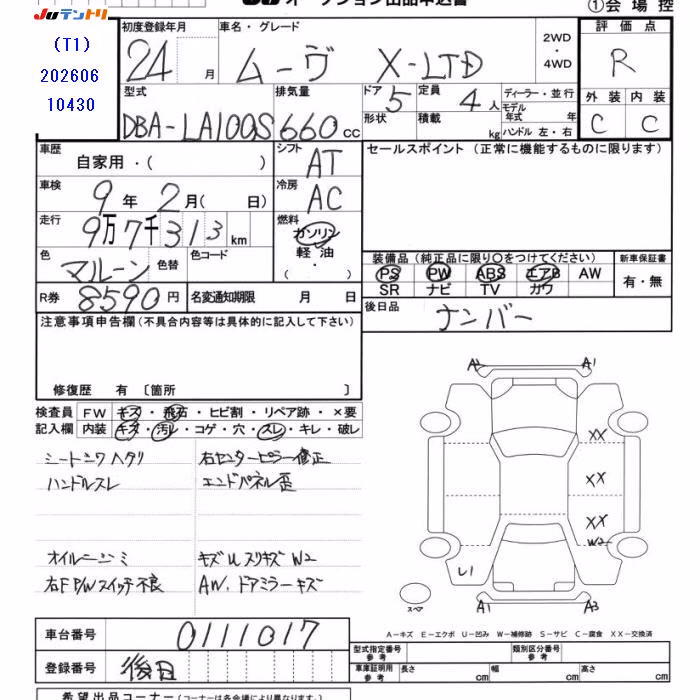 JUテントリ
オークション出品申込書
①会場控
(T1)
202606
10430
初度登録年月 24 月
車名・グレード ムーヴ X-LTD
2WD・4WD
評価点 R
型式 DBA-LA100S
排気量 660cc
ドア 5 定員 4人
ディーラー・並行
形状 積載 kg
モデル年式 年
ハンドル 左・右
外装 内装
C C
車歴 自家用・( )
シフト AT
セールスポイント(正常に機能するものに限ります)
車検 9年 2月( 日)
冷房 AC
走行 9万7千313km
燃料 ガソリン・軽油・( )
色 マルーン 色替 色コード
装備品(純正品に限り○をつけてください) 新車保証書
PS PW ABS エアB AW 有・無
SR ナビ TV カワ
R券 8590円 名変通知期限 月 日
後日品 ナンバー
注意事項申告欄(不具合内容等は具体的に記入して下さい)
修復歴 有 〔箇所 〕
検査員 FW キズ・飛石・ヒビ割・リペア跡・×要
記入欄 内装 キズ・汚レ・コゲ・穴・スレ・キレ・破レ
右センターピラー修正
ハンドルスレ エンドパネル歪
右F P/Wスイッチ不良 AW、ドアミラーキズ
A2 A1
XX
XX
XX
W2
L1
A1 A3
スペア
A-キズ E-エクボ U-凹み W-補修跡 S-サビ C-腐食 XX-交換済
車台番号 0111017
型式指定番号 参考 類別区分番号 参考
登録番号 後日
車庫証明用 参考 長さ cm 幅 cm 高さ cm
希望出品コーナー(コーナーは各会場により異なります。)